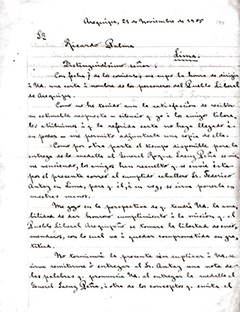 Arequipa, 23 de Noviembre de 1905
Sr
Ricardo Palma
Lima.
Distinguidísimo señor:
Con fecha 7 de los corrientes me cupo la honra de dirigir
á Ud. una carta á nombre de los personeros del Pueblo Liberal
de Arequipa.
Como no he tenido aun la satisfacción de recibir
su estimable respuesta
la referida carta no haya llegado á
su poder me permito adjuntarle una copia de ella.
Como por otra parte el tiempo disponible para la
entrega de la medalla al General Roque Saenz Peña
los amigos han resuelto
por el presente correo al cumplido caballero Sr. Federico
en Lima, para que él, á su vez, se sirva ponerla en
nuestras manos.
Me gozo en la perspectiva de que tendrá Ud. la ama-
bilidad de dar honroso cumplimiento á la misión que el
Pueblo Liberal Arequipeño se tomara la libertad de enco-
mendarle, con lo cual va á quedar comprometida su gra-
titud.
No terminaré la presente sin suplicar á Ud. se
sirva remitirme ó entregar al Sr. una nota de
las palabras que pronuncie Ud. al entregar la medalla al
General Saenz Peña, y otra de los conceptos que emita el